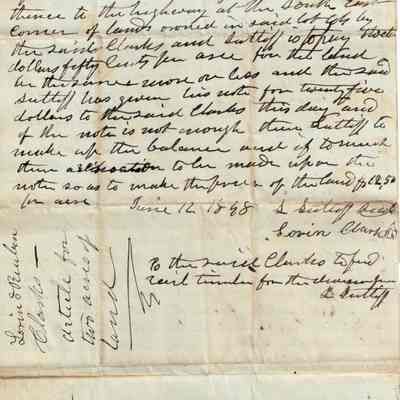 thence to the highway at the South East
corner of lands owned in said lot 66 by
the said Clarks and Sutliff is to pay
dollars fifty Cents per acre for the land
be the same more or less and the said
Sutliff has given his note for twenty five
dollars to the said Clarks this day and
if the note is not enough then Sutliff to
make up the balance and if to much
then a to be made upon the
note so as to make the price of the land $12,50
for acre
June 12 1848
L Sutliff
Lovin Clark
To the said Clarks to find
rail timber for the
L Sutliff
Lovin & Reuben
Clarks —
article for
two acres of
land